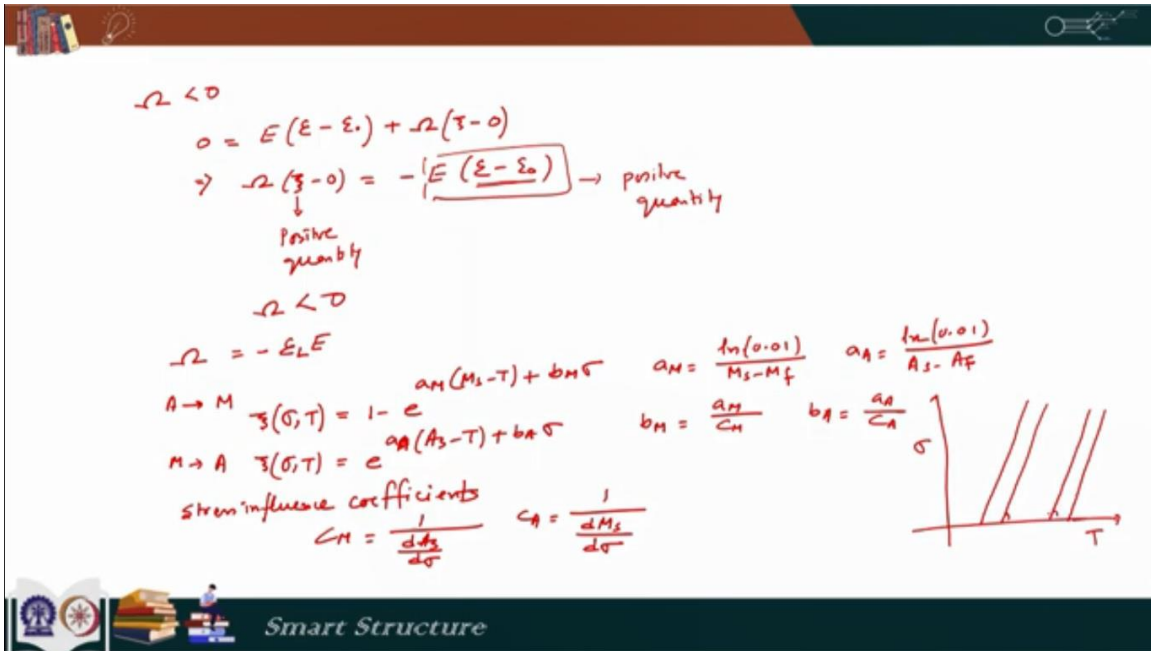 Ω < 0
0 = E(ε - ε₀) + Ω(ξ - 0)
⇒ Ω(ξ - 0) = - E(ε - ε₀) → positive quantity
↓
Positive quantity
Ω < 0
Ω = - ε_L E
A → M ξ(σ,T) = 1 - e^{a_M(M_s - T) + b_M σ} a_M = \frac{ln(0.01)}{M_s - M_f} a_A = \frac{ln(0.01)}{A_s - A_F}
M → A ξ(σ,T) = e^{a_A(A_s - T) + b_A σ} b_M = \frac{a_M}{C_M} b_A = \frac{a_A}{C_A}
Stress influence coefficients
C_M = \frac{1}{\frac{dA_s}{dσ}} C_A = \frac{1}{\frac{dM_s}{dσ}}
σ
T
Smart Structure